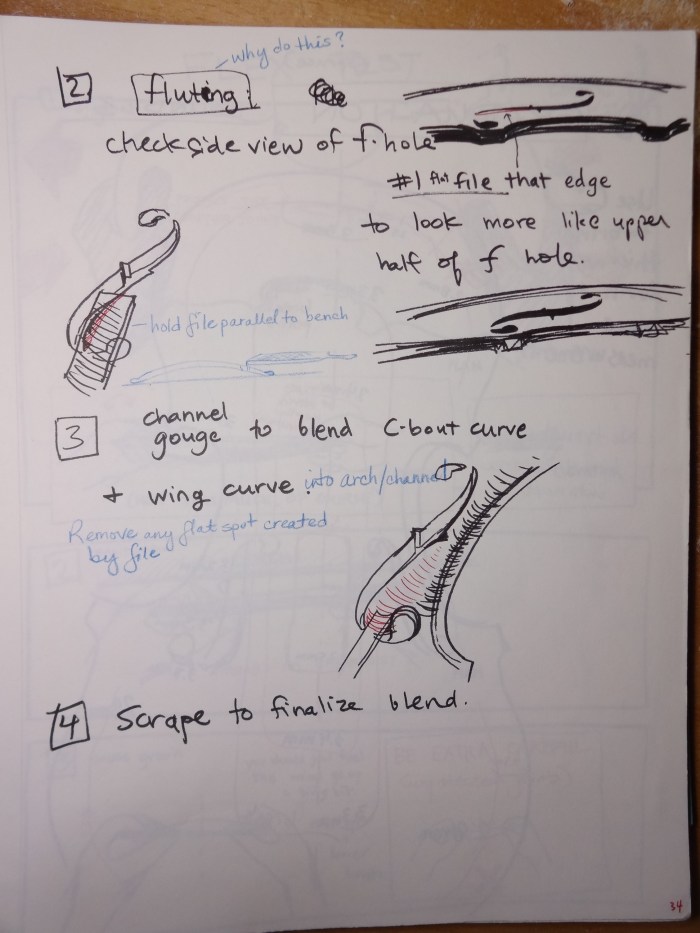 why do this?
2 fluting
check side view of f-hole
#1 flat file that edge
to look more like upper
half of f hole.
hold file parallel to bench
3 channel
gouge to blend C-bout curve
+ wing curve. into arch/channel
Remove any flat spot created
by file
4 Scrape to finalize blend.
34